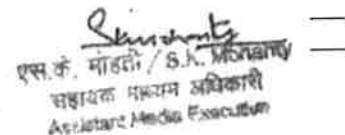 एस.के. मोहंती / S.K. Mohanty
सहायक माध्यम अधिकारी
Assistant Media Executive